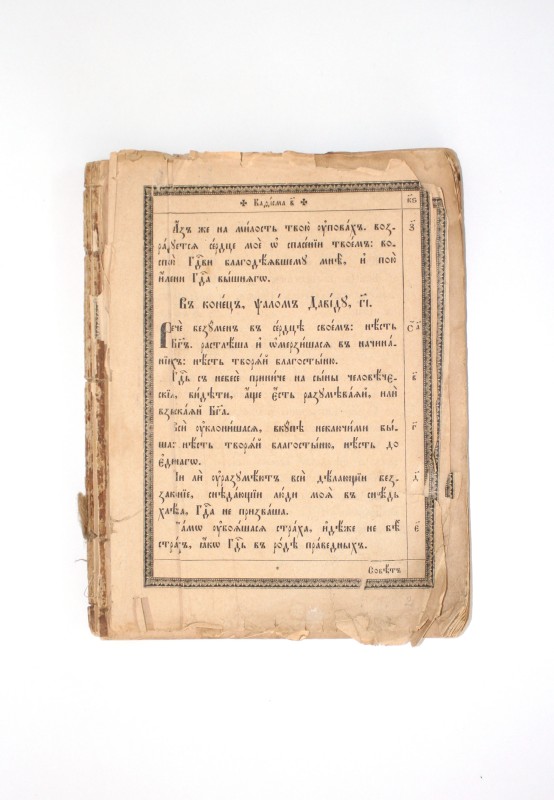 ✠ Каѳі́сма в҃ ✠ к҃ѕ
А҆́зъ же на ми́лость твою̀ ᲂу҆пова́хъ. воз- з҃
ра́дꙋется се́рдце моѐ ѡ҆ спасе́нїи твое́мъ: во-
спою̀ гдⷭ҇еви благодѣ́ѧвшемꙋ мнѣ̀, и҆ пою̀
и҆́мени гдⷭ҇а вы́шнѧгѡ.
Въ коне́цъ, ѱало́мъ Даві́дꙋ, г҃і.
Речѐ безꙋ́менъ въ се́рдцѣ свое́мъ: нѣ́сть с҃т. а҃
бг҃ъ. растлѣ́ша и҆ ѡ҆мерзи́шасѧ въ начина́-
нїихъ: нѣ́сть творѧ́й благосты́ню.
Гдⷭ҇ь съ небесѐ прини́че на сы́ны человѣ́че- в҃
скїѧ, ви́дѣти, а҆́ще є҆́сть разꙋмѣва́ѧй, и҆лѝ
взыска́ѧй бг҃а.
Всѝ ᲂу҆клони́шасѧ, вкꙋ́пѣ неключи́ми бы́- г҃
ша: нѣ́сть творѧ́й благосты́ню, нѣ́сть до
є҆ди́нагѡ.
Ни лѝ ᲂу҆разꙋмѣ́ютъ всѝ дѣ́лающїи без- д҃
зако́нїе, снѣда́ющїи лю́ди моѧ̑ въ снѣ́дь
хлѣ́ба, гдⷭ҇а не призва́ша.
Та́мѡ ᲂу҆боѧ́шасѧ стра́ха, и҆дѣ́же не бѣ̀ є҃
стра́хъ, ꙗ҆́кѡ гдⷭ҇ь въ ро́дѣ пра́ведныхъ.
* Совѣ́тъ